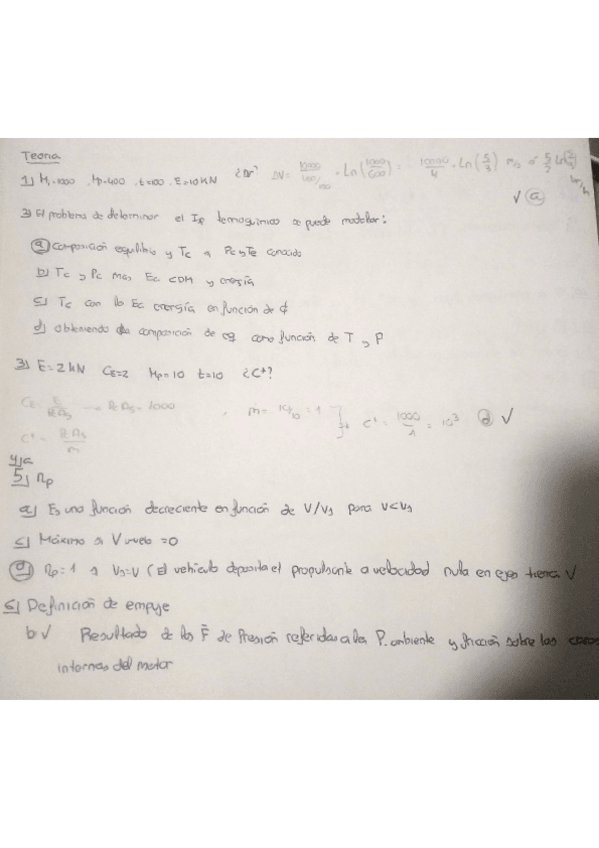 Teoria
1) Mi=1000 , Mp=400 , t=100 , E=10KN ¿Δv? ΔV= 10000/400/100 · Ln(1000/600) = 10000/4 · Ln(5/3) m/s ó
√ (a)
3) El problema de determinar el Isp termoquímico se puede modelar:
(a) Composición equilibrio y Tc a Pc y Te conocido
b) Tc y Pc mas Ec CDM y energía
c) Tc con la Ec energía en función de
d) obteniendo la composición de eq como función de T y P
3) E=2KN CE=2 Mp=10 t=10 ¿C*?
CE= E/PcAg → PcAg=1000 , m= 10/10 =1 } C* = 1000/1 = 10³ (d) √
C* = PcAg/m
4) c
5) np
a) Es una función decreciente en función de V/Vs para V<Vs
c) Máximo a Vvuelo =0
(d) np=1 a Vs=V (El vehículo deposita el propulsante a velocidad nula en ejes tierra V
6) Definición de empuje
b √ Resultado de las F de Presión referidas a la P. ambiente y fricción sobre las caras
internas del motor